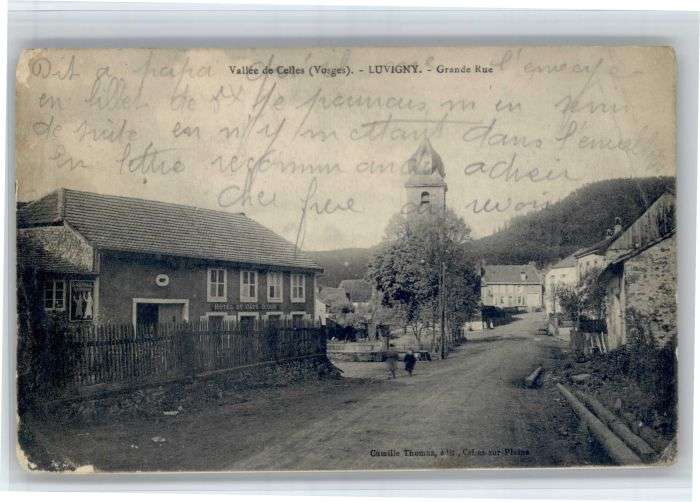 Vallée de Celles (Vosges). - LUVIGNY. - Grande Rue
Dit a papa de l'envoye
en billet de je pourrais m'en
de suite en n'y mettant dans l'
en lettre recommandé adieu
cher frere au revoir
HOTEL DU VIEUX
Camille Thomas, édit., Celles-sur-Plaine